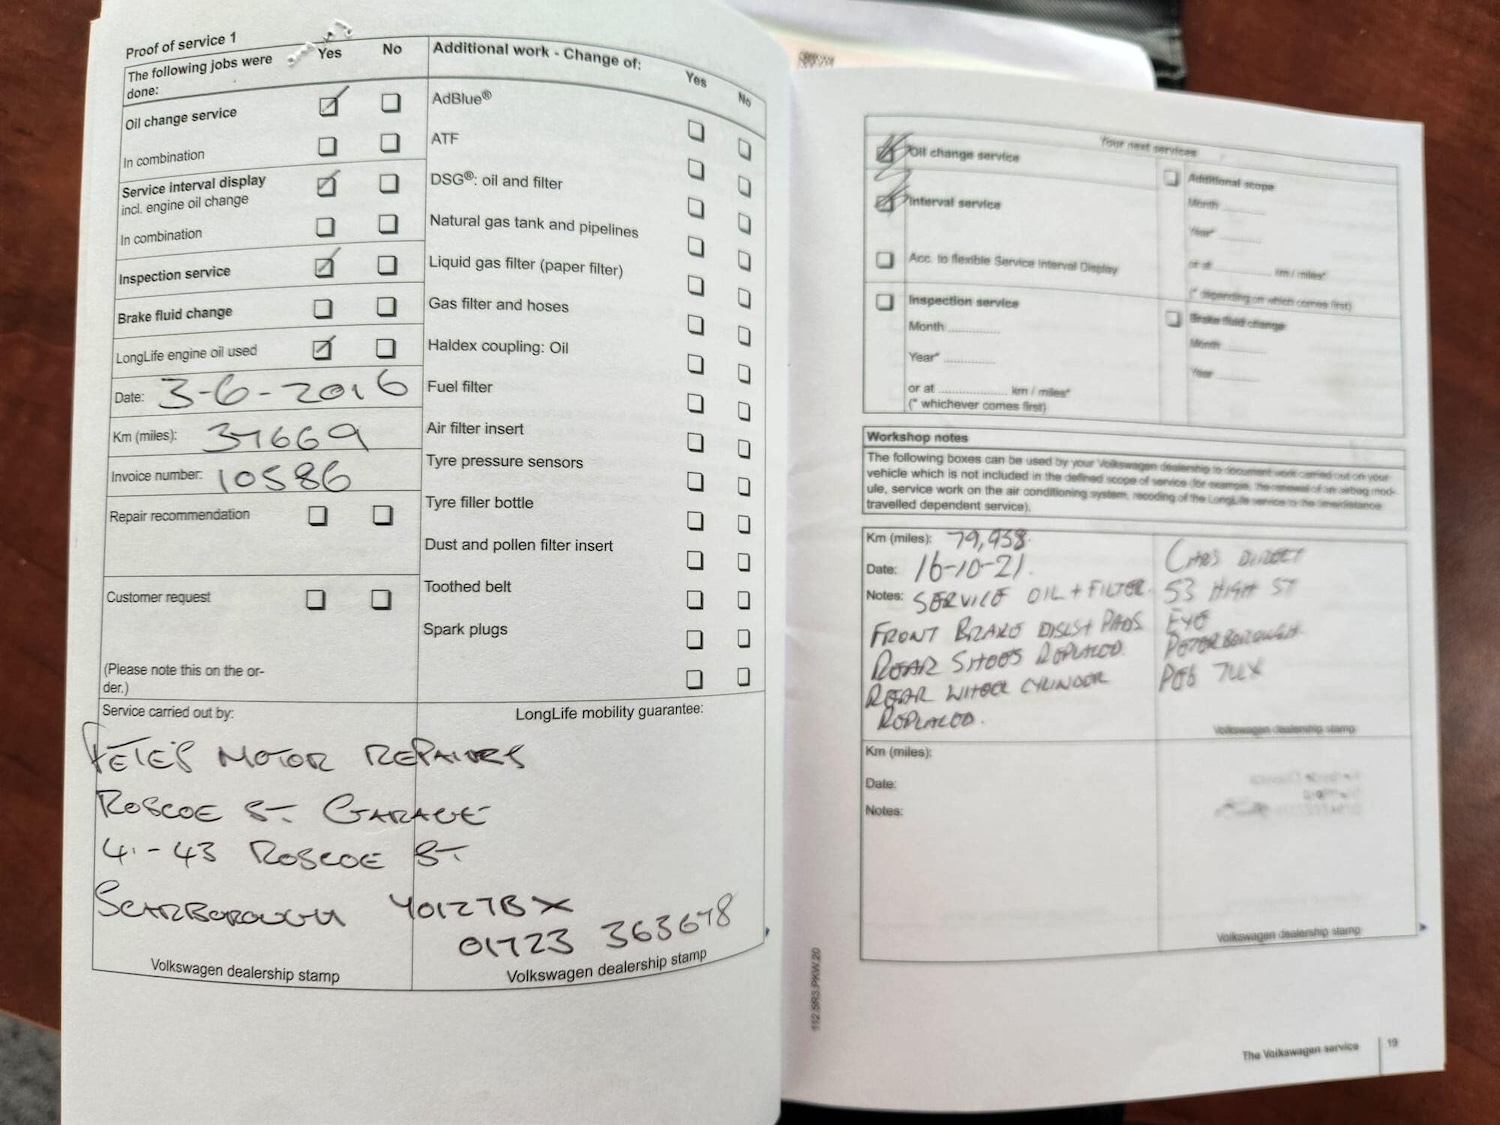 Proof of service 1
The following jobs were done: Yes No
Oil change service
In combination
Service interval display
incl. engine oil change
In combination
Inspection service
Brake fluid change
LongLife engine oil used
Date: 3-6-2016
Km (miles): 37669
Invoice number: 10586
Repair recommendation
Customer request
(Please note this on the or-
der.)
Additional work - Change of: Yes No
AdBlue®
ATF
DSG®: oil and filter
Natural gas tank and pipelines
Liquid gas filter (paper filter)
Gas filter and hoses
Haldex coupling: Oil
Fuel filter
Air filter insert
Tyre pressure sensors
Tyre filler bottle
Dust and pollen filter insert
Toothed belt
Spark plugs
Service carried out by:
LongLife mobility guarantee:
PETE'S MOTOR REPAIRS
ROSCOE ST. GARAGE
41-43 ROSCOE ST.
SCARBOROUGH YO127BX
01723 363678
Volkswagen dealership stamp
Volkswagen dealership stamp
Your next services
Oil change service
Interval service
Acc. to flexible Service Interval Display
Inspection service
Month ............
Year* ............
or at ................ km / miles*
(* whichever comes first)
Additional scope
Month ..........
Year* ..........
or at ................ km / miles*
(* depending on which comes first)
Brake fluid change
Month ..........
Year ..........
Workshop notes
The following boxes can be used by your Volkswagen dealership to document work carried out on your
vehicle which is not included in the defined scope of service (for example, the renewal of an airbag mod-
ule, service work on the air conditioning system, recoding of the LongLife service to the time/distance
travelled dependent service).
Km (miles): 79,938
Date: 16-10-21.
Notes: SERVICE OIL + FILTER.
FRONT BRAKE DISCS + PADS
REAR SHOES REPLACED.
REAR WHEEL CYLINDER
REPLACED.
CARS DIRECT
53 HIGH ST
EYE
PETERBOROUGH.
PE6 7UX
Volkswagen dealership stamp
Km (miles):
Date:
Notes:
Volkswagen dealership stamp
112.5R3.PKW.20
The Volkswagen service 19